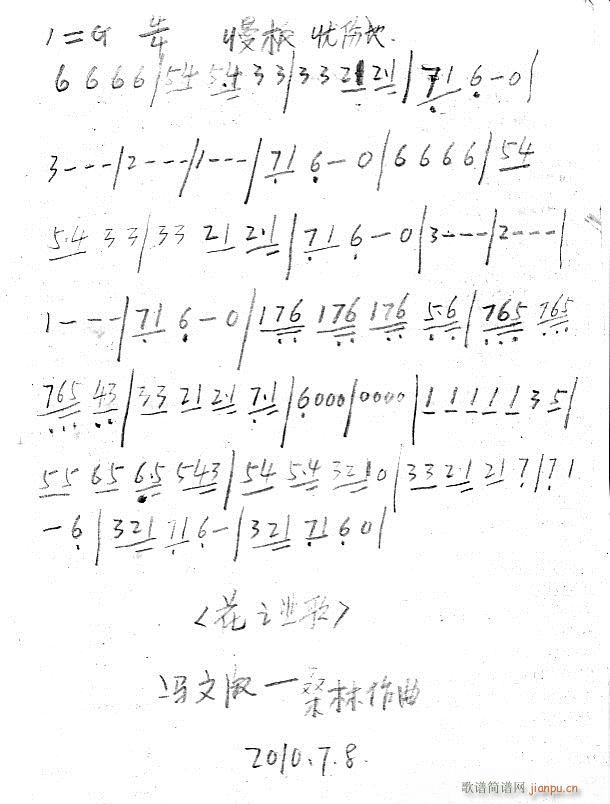 1=G 4/4 慢板 忧伤地
6 6 6 6/54 5.4 3 3/3 3 21 2.1/71 6-0/
3---/2---/1---/71 6-0/6 6 6 6/54
5.4 33/33 21 2.1/71 6-0/3---/2---/
1---/71 6-0/176 176 176 5.6/765 765
765 43/33 21 2.1 7.1/6000/0000/1 1 1 1 1 3 5/
55 65 6.5 543/54 5.4 3210/33 2.1 21 7/71
-6/321 71 6-/321 71 6 0/
<花之悲歌>
冯文波一桑林作曲
2010.7.8.
歌谱简谱网
jianpu.cn